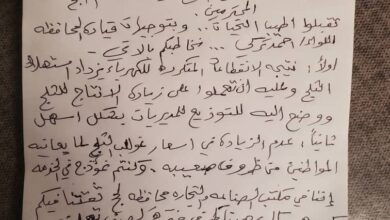 المحترمين:
تقبلوا اطيب التحيات ... وبتوجيهات قيادة المحافظه
للواء / احمد تركي ... نخاطبكم بالاتي -
اولاً: نتيجه الانقطاعات المتكرره للكهرباء يزداد استهلاك
الثلج وعليه ان تعملوا على زيادة الانتاج للثلج
ووضع اليه للتوزيع للمديريات بشكل اسهل
ثانياً: عدم الزيادة في اسعار قوالب الثلج لما يعانيه
المواطنين من ظروف صعبه . وكنتم نموذج في
إننا في مكتب الصناعه والتجاره محافظه لحج ثقتنا فيكم